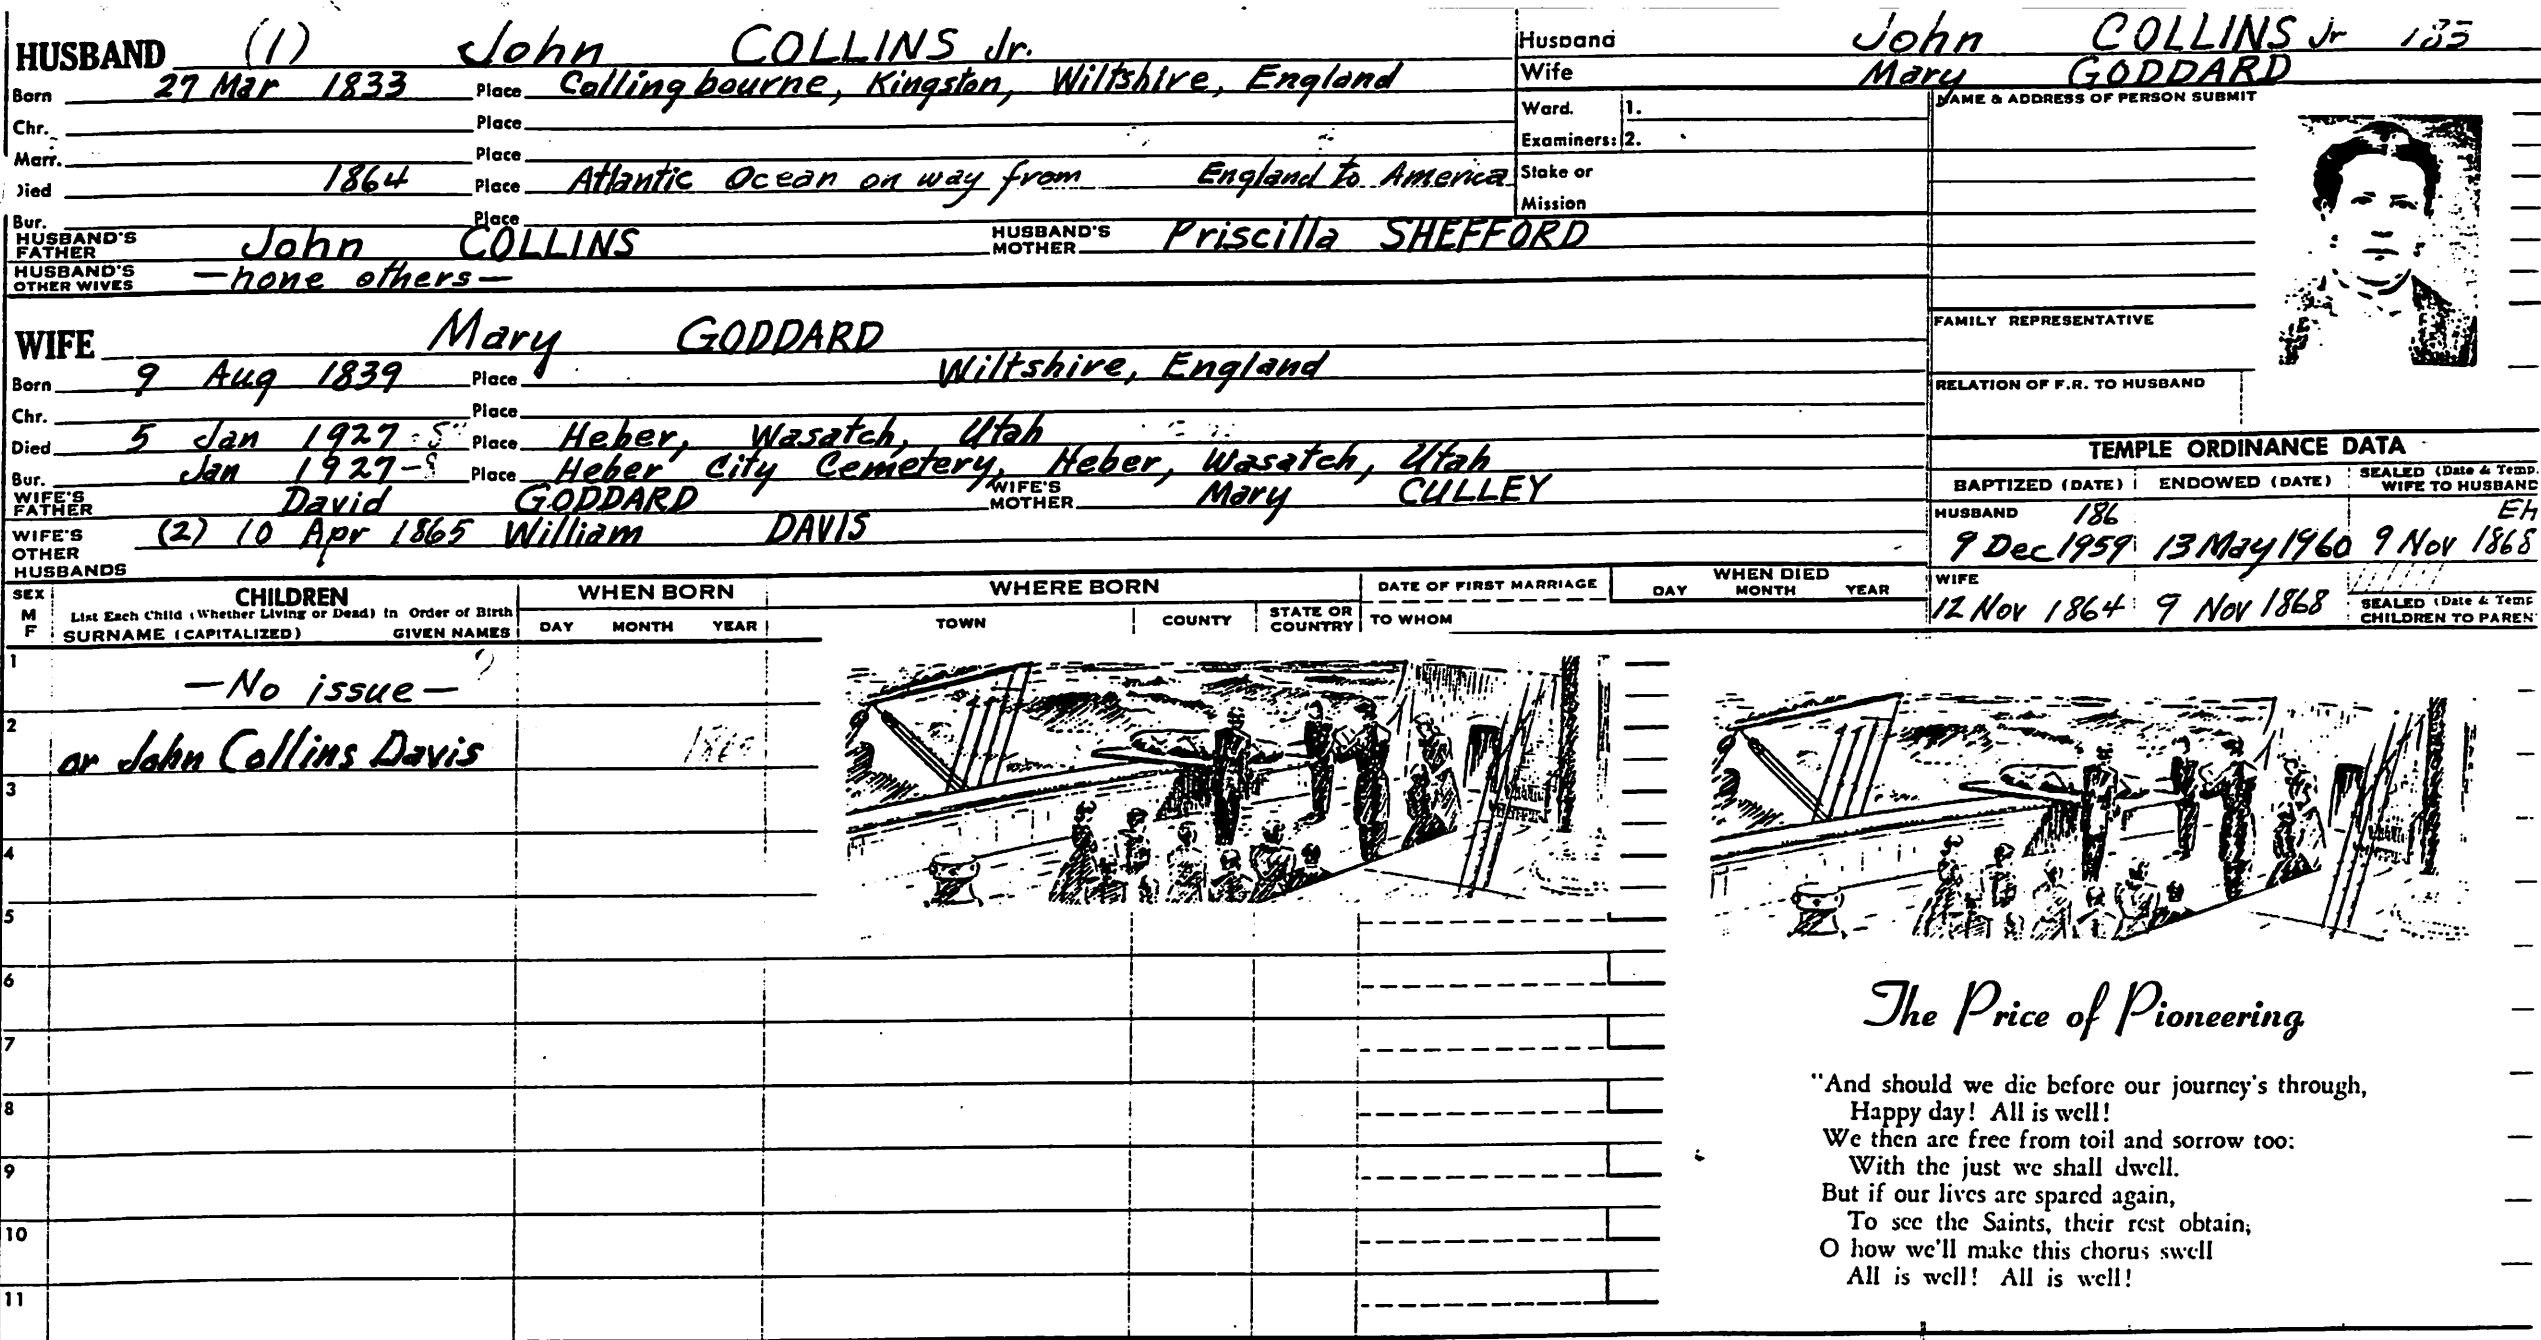 HUSBAND (1) John COLLINS Jr.
Born 27 Mar 1833 Place Collingbourne, Kingston, Wiltshire, England
Chr. Place
Marr. Place
Died 1864 Place Atlantic Ocean on way from England to America
Bur. Place
HUSBAND'S FATHER John COLLINS HUSBAND'S MOTHER Priscilla SHEFFORD
HUSBAND'S OTHER WIVES —none others—
WIFE Mary GODDARD
Born 9 Aug 1839 Place Wiltshire, England
Chr. Place
Died 5 Jan 1927 Place Heber, Wasatch, Utah
Bur. Jan 1927 Place Heber City Cemetery, Heber, Wasatch, Utah
WIFE'S FATHER David GODDARD WIFE'S MOTHER Mary CULLEY
WIFE'S OTHER HUSBANDS (2) 10 Apr 1865 William DAVIS
Husband John COLLINS Jr
Wife Mary GODDARD
Ward. 1.
Examiners: 2.
Stake or
Mission
NAME & ADDRESS OF PERSON SUBMIT
FAMILY REPRESENTATIVE
RELATION OF F.R. TO HUSBAND
TEMPLE ORDINANCE DATA
BAPTIZED (DATE) ENDOWED (DATE) SEALED (Date & Temp. WIFE TO HUSBAND
HUSBAND 186 EH
9 Dec 1959 13 May 1960 9 Nov 1868
WIFE
12 Nov 1864 9 Nov 1868 SEALED (Date & Temp CHILDREN TO PAREN
SEX M F
CHILDREN
List Each Child (Whether Living or Dead) in Order of Birth
SURNAME (CAPITALIZED) GIVEN NAMES
WHEN BORN
DAY MONTH YEAR
WHERE BORN
TOWN COUNTY STATE OR COUNTRY
DATE OF FIRST MARRIAGE
TO WHOM
WHEN DIED
DAY MONTH YEAR
1 —No issue— ?
2 or John Collins Davis
3
4
5
6
7
8
9
10
11
The Price of Pioneering
"And should we die before our journey's through,
Happy day! All is well!
We then are free from toil and sorrow too:
With the just we shall dwell.
But if our lives are spared again,
To see the Saints, their rest obtain;
O how we'll make this chorus swell
All is well! All is well!